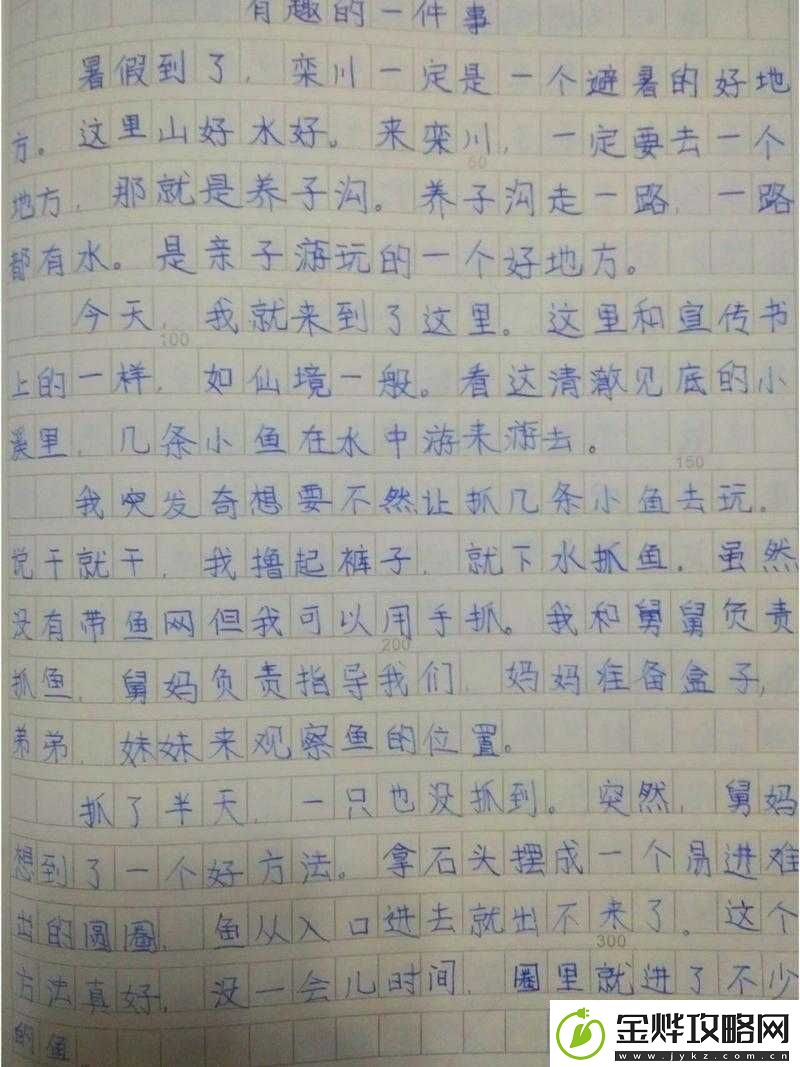 有趣的一件事
暑假到了，栾川一定是一个避暑的好地
方。这里山好水好。来栾川，一定要去一个
50
地方，那就是养子沟。养子沟走一路，一路
都有水。是亲子游玩的一个好地方。
今天，我就来到了这里。这里和宣传书
100
上的一样，如仙境一般。看这清澈见底的小
溪里，几条小鱼在水中游来游去。
150
我突发奇想要不然让抓几条小鱼去玩。
说干就干，我撸起裤子，就下水抓鱼。虽然
没有带鱼网但我可以用手抓。我和舅舅负责
200
抓鱼，舅妈负责指导我们，妈妈准备盒子，
弟弟，妹妹来观察鱼的位置。
抓了半天，一只也没抓到。突然，舅妈
想到了一个好方法。拿石头摆成一个易进难
出的圆圈，鱼从入口进去就出不来了。这个
300
方法真好，没一会儿时间，圈里就进了不少
的鱼
金烨攻略网
www.jykz.com.cn